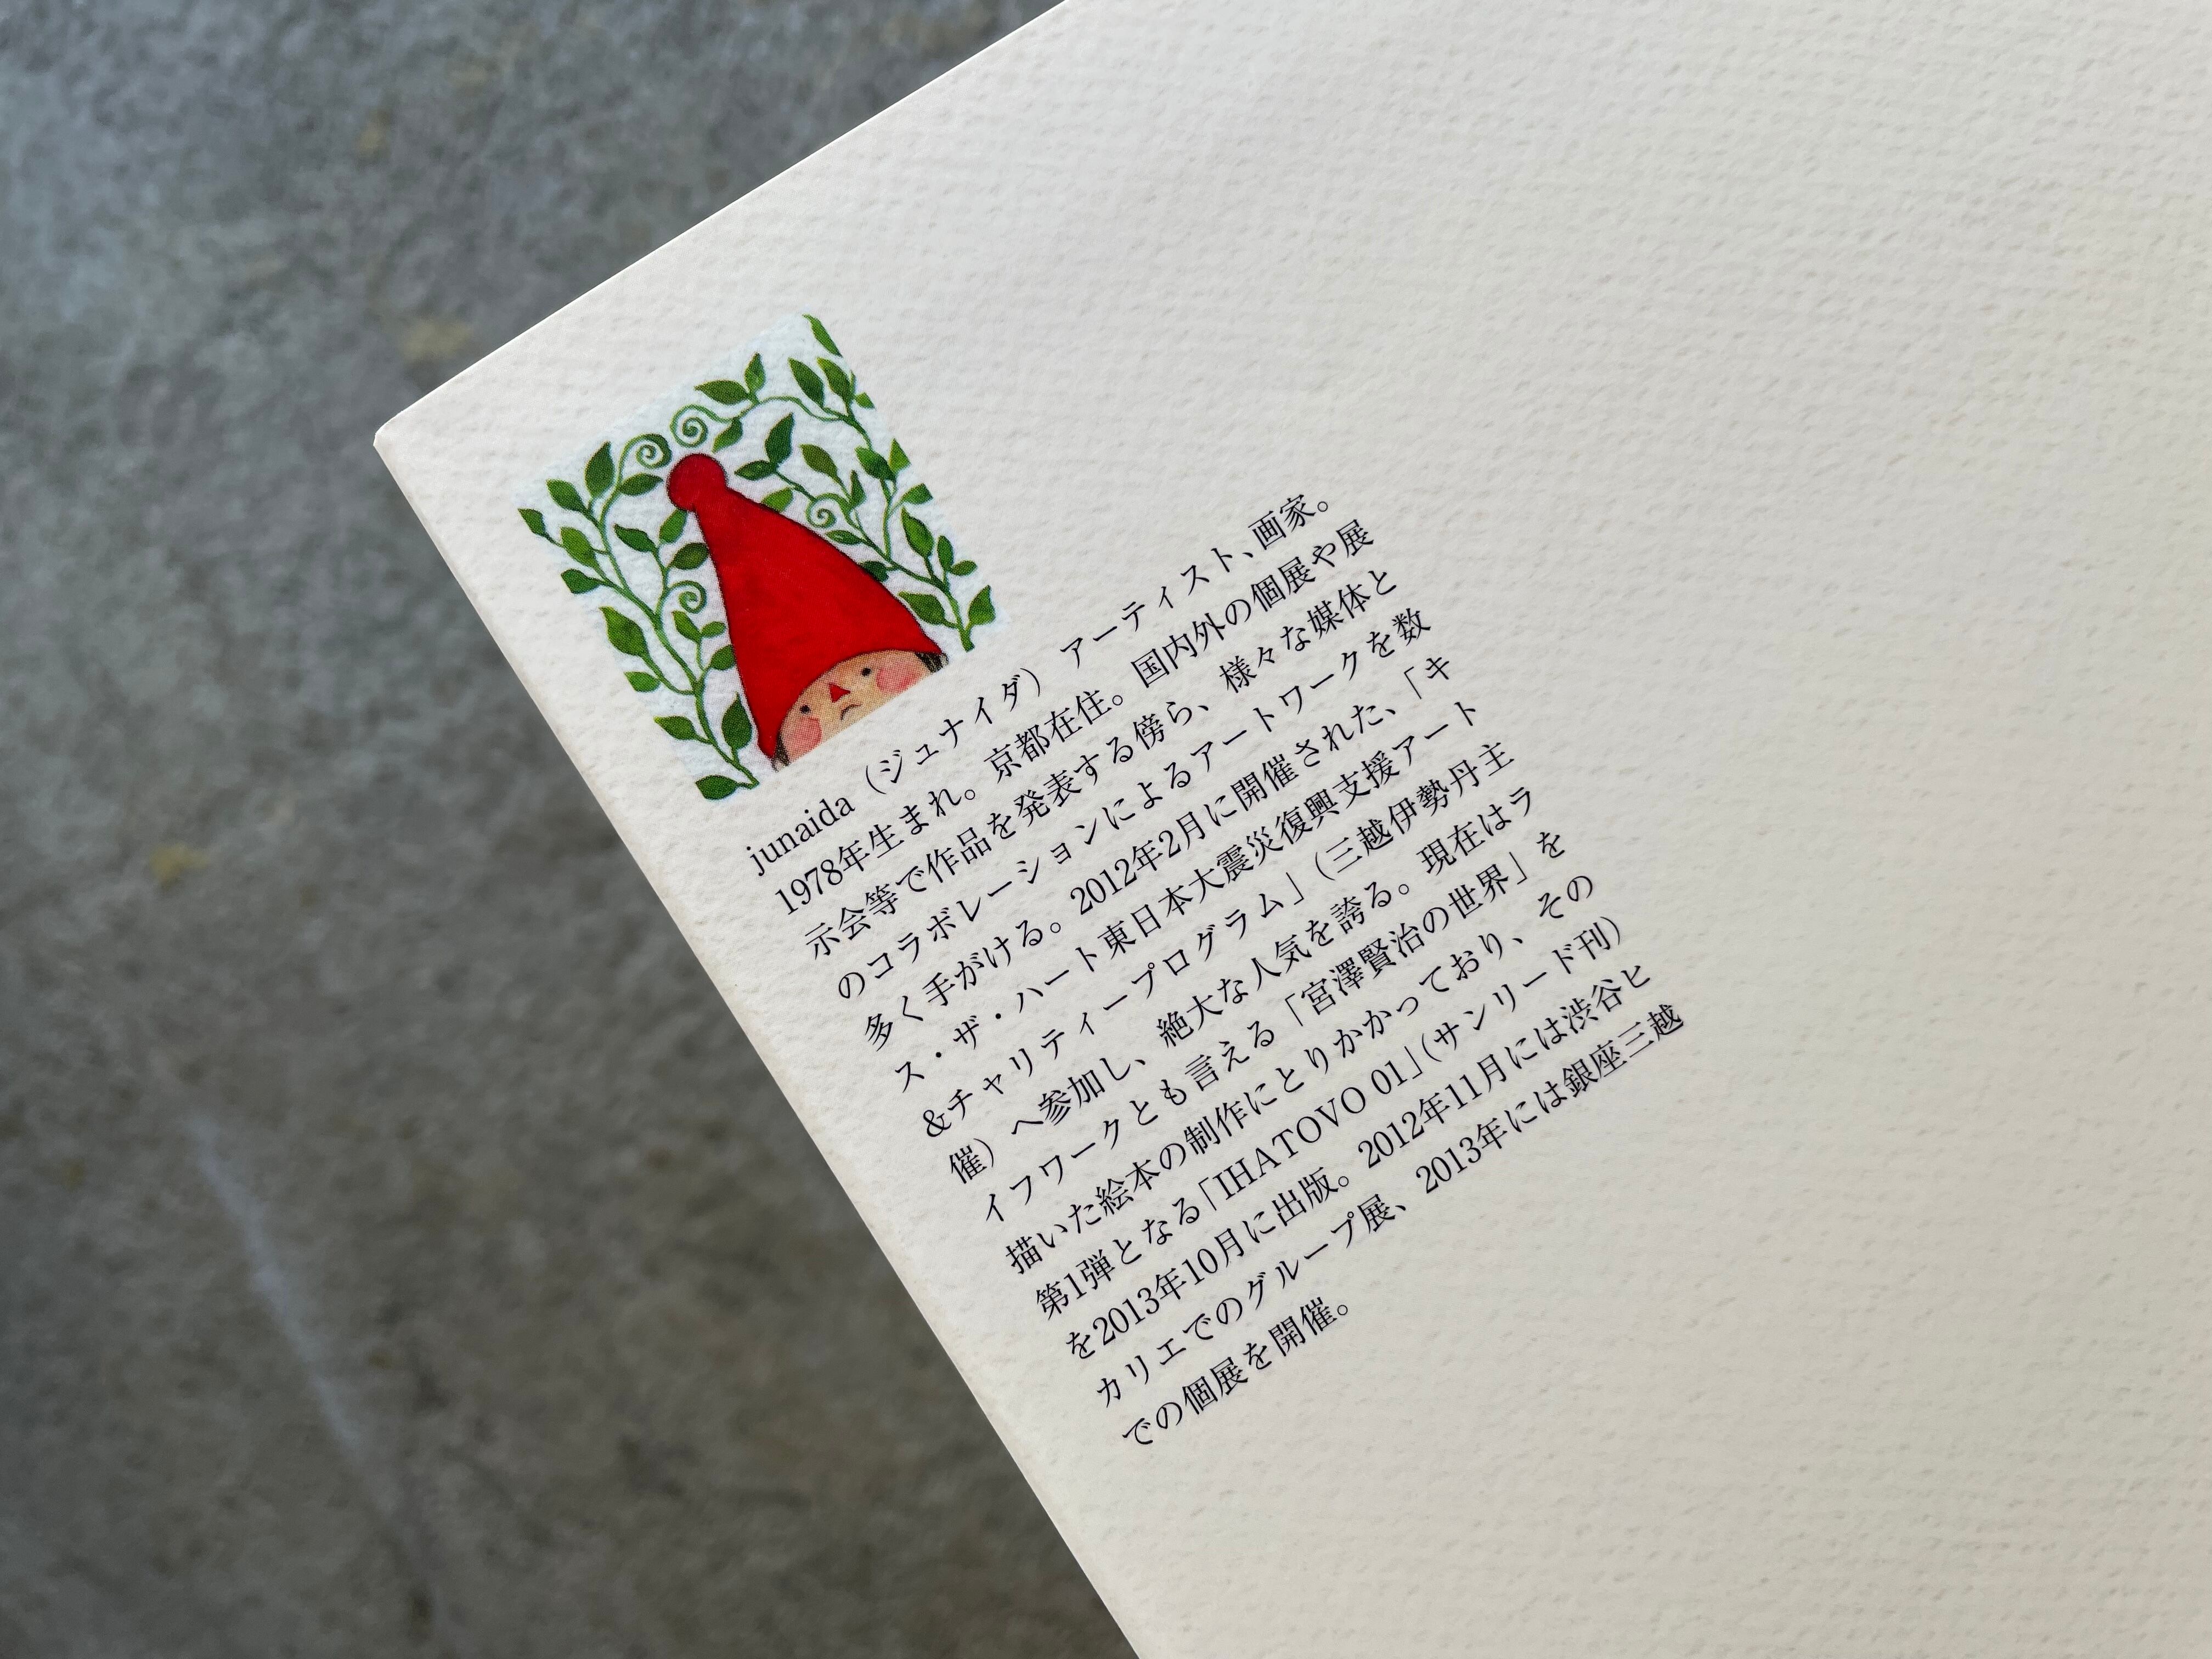 junaida（ジュナイダ） アーティスト、画家。
1978年生まれ。京都在住。国内外の個展や展
示会等で作品を発表する傍ら、様々な媒体と
のコラボレーションによるアートワークを数
多く手がける。2012年2月に開催された、「キ
ス・ザ・ハート東日本大震災復興支援アート
&チャリティープログラム」（三越伊勢丹主
催）へ参加し、絶大な人気を誇る。現在はラ
イフワークとも言える「宮澤賢治の世界」を
描いた絵本の制作にとりかかっており、その
第1弾となる「IHATOVO 01」（サンリード刊）
を2013年10月に出版。2012年11月には渋谷ヒ
カリエでのグループ展、2013年には銀座三越
での個展を開催。